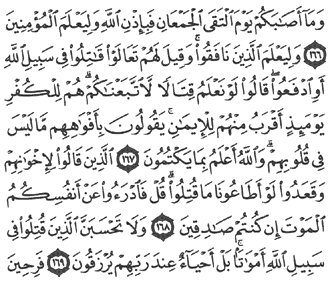 وَمَآ أَصَٰبَكُمْ يَوْمَ ٱلْتَقَى ٱلْجَمْعَانِ فَبِإِذْنِ ٱللَّهِ وَلِيَعْلَمَ ٱلْمُؤْمِنِينَ
١٦٦ وَلِيَعْلَمَ ٱلَّذِينَ نَافَقُوا۟ ۚ وَقِيلَ لَهُمْ تَعَالَوْا۟ قَٰتِلُوا۟ فِى سَبِيلِ ٱللَّهِ
أَوِ ٱدْفَعُوا۟ ۖ قَالُوا۟ لَوْ نَعْلَمُ قِتَالًا لَّٱتَّبَعْنَٰكُمْ ۗ هُمْ لِلْكُفْرِ
يَوْمَئِذٍ أَقْرَبُ مِنْهُمْ لِلْإِيمَٰنِ ۚ يَقُولُونَ بِأَفْوَٰهِهِم مَّا لَيْسَ
فِى قُلُوبِهِمْ ۗ وَٱللَّهُ أَعْلَمُ بِمَا يَكْتُمُونَ ١٦٧ ٱلَّذِينَ قَالُوا۟ لِإِخْوَٰنِهِمْ
وَقَعَدُوا۟ لَوْ أَطَاعُونَا مَا قُتِلُوا۟ ۗ قُلْ فَٱدْرَءُوا۟ عَنْ أَنفُسِكُمُ
ٱلْمَوْتَ إِن كُنتُمْ صَٰدِقِينَ ١٦٨ وَلَا تَحْسَبَنَّ ٱلَّذِينَ قُتِلُوا۟ فِى
سَبِيلِ ٱللَّهِ أَمْوَٰتًۢا ۚ بَلْ أَحْيَآءٌ عِندَ رَبِّهِمْ يُرْزَقُونَ ١٦٩ فَرِحِينَ